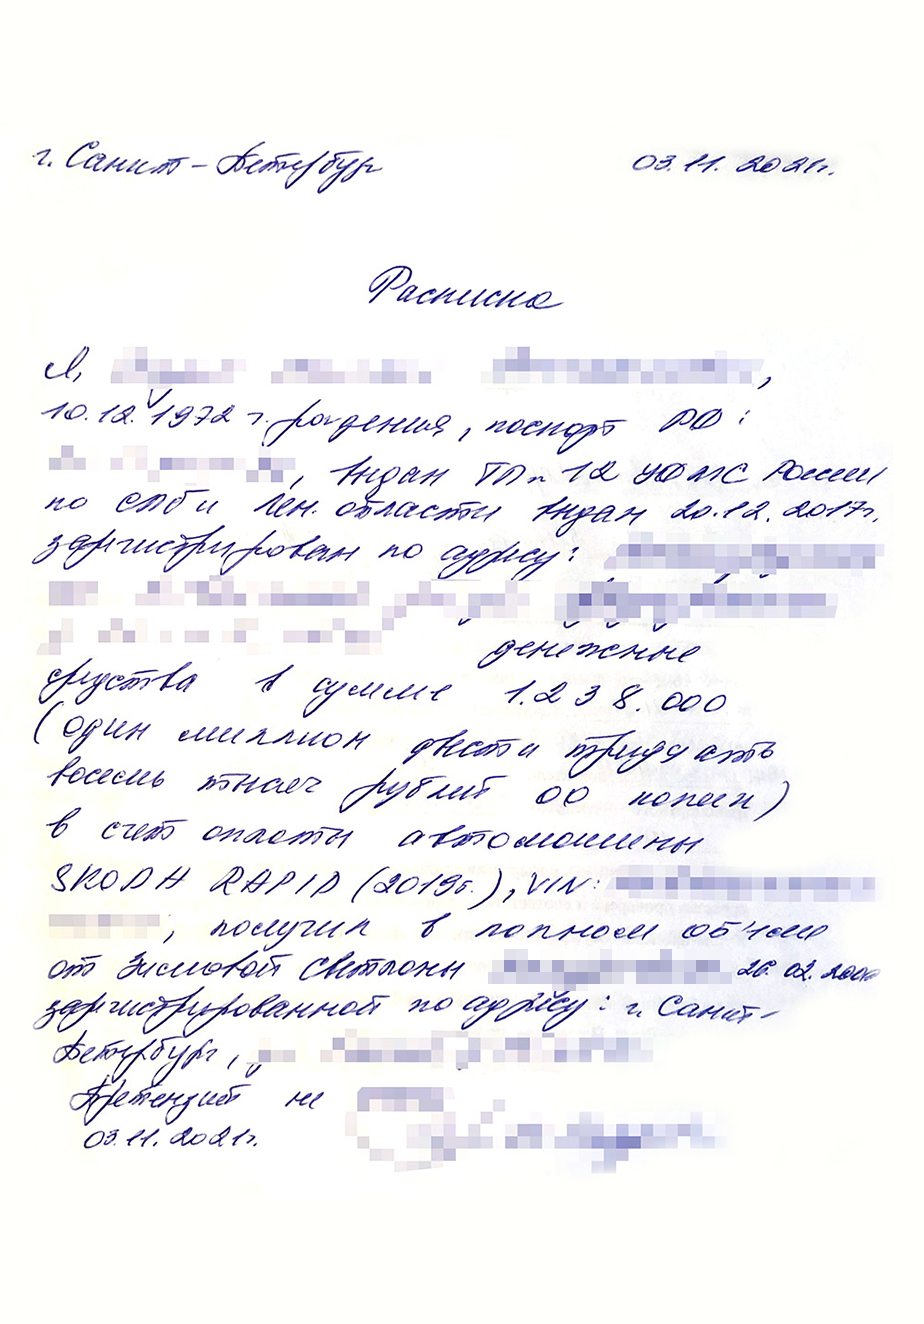 г. Санкт-Петербург 03.11.2021г.
Расписка
Я,
,
10.12.1972 г. рождения, паспорт РФ:
, выдан ТП № 12 УФМС России
по СПб и Лен. области выдан 20.12.2017г.
зарегистрирован по адресу:
денежные
средства в сумме 1.238.000
(один миллион двести тридцать
восемь тысяч рублей 00 копеек)
в счет оплаты автомашины
SKODA RAPID (2019г.), VIN:
, получил в полном объёме
от Зимовой Светланы 26.02.2000
зарегистрированной по адресу: г. Санкт-
Петербург,
Претензий не
03.11.2021г.